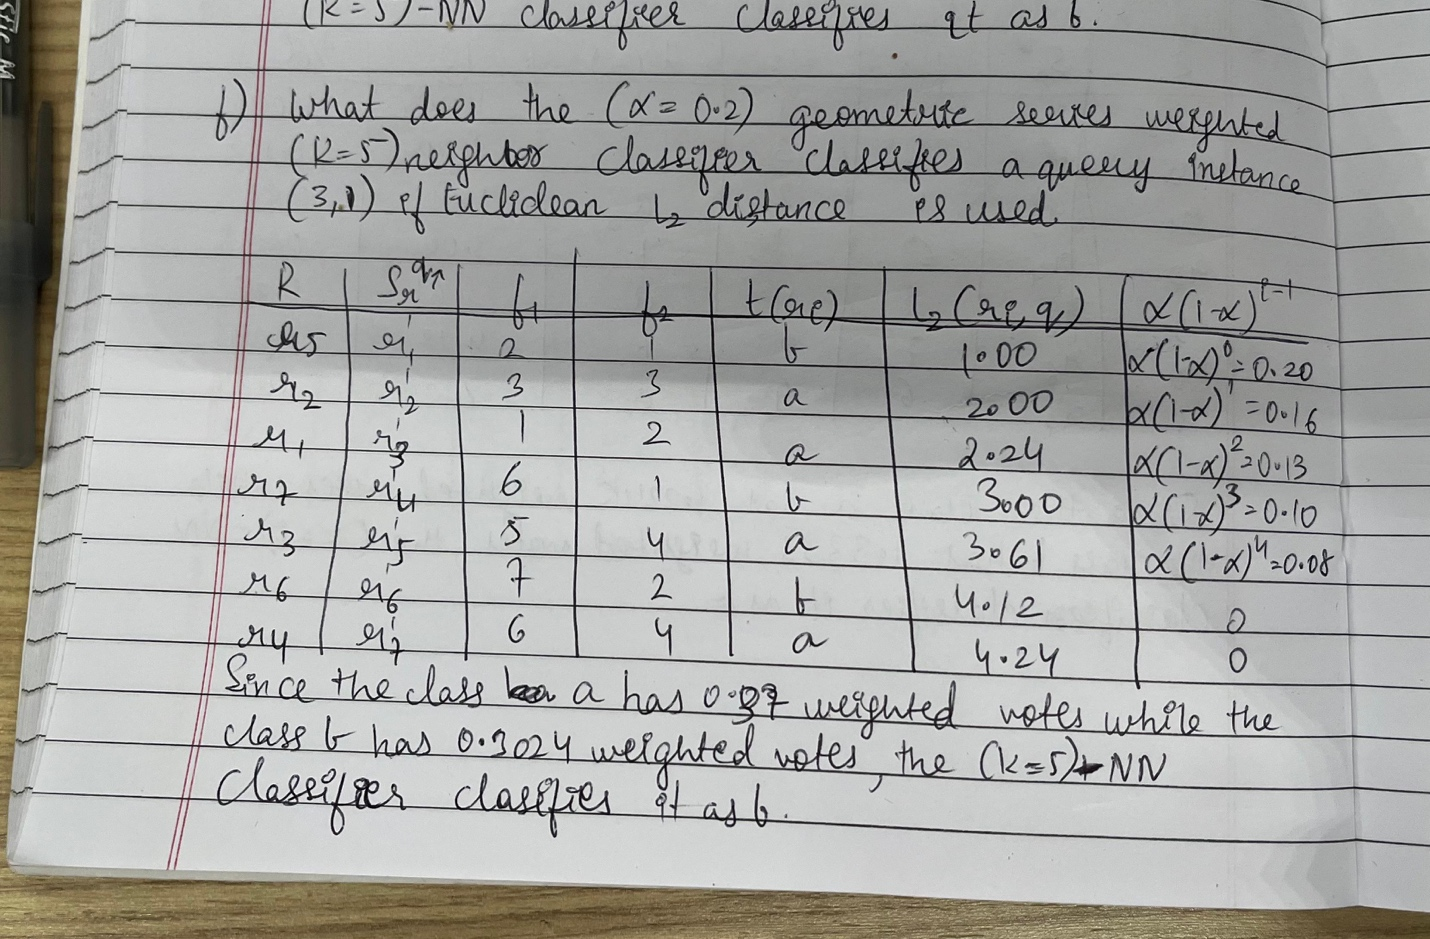 (K=5)-NN classifier classifies it as b.
f) What does the (α=0.2) geometric series weighted
(K=5) neighbor classifier classifies a query instance
(3,1) if Euclidean L₂ distance is used.
R | Sᵣ^(q,r) | f₁ | f₂ | t(rᵢ) | L₂(rᵢ,q) | α(1-α)^(i-1)
r₅ | r'₁ | 2 | 1 | b | 1.00 | α(1-α)⁰=0.20
r₂ | r'₂ | 3 | 3 | a | 2.00 | α(1-α)¹=0.16
r₁ | r'₃ | 1 | 2 | a | 2.24 | α(1-α)²=0.13
r₇ | r'₄ | 6 | 1 | b | 3.00 | α(1-α)³=0.10
r₃ | r'₅ | 5 | 4 | a | 3.61 | α(1-α)⁴=0.08
r₆ | r'₆ | 7 | 2 | b | 4.12 | 0
r₄ | r'₇ | 6 | 4 | a | 4.24 | 0
Since the class a has 0.37 weighted votes while the
class b has 0.3024 weighted votes, the (k=5)-NN
Classifier classifies it as b.